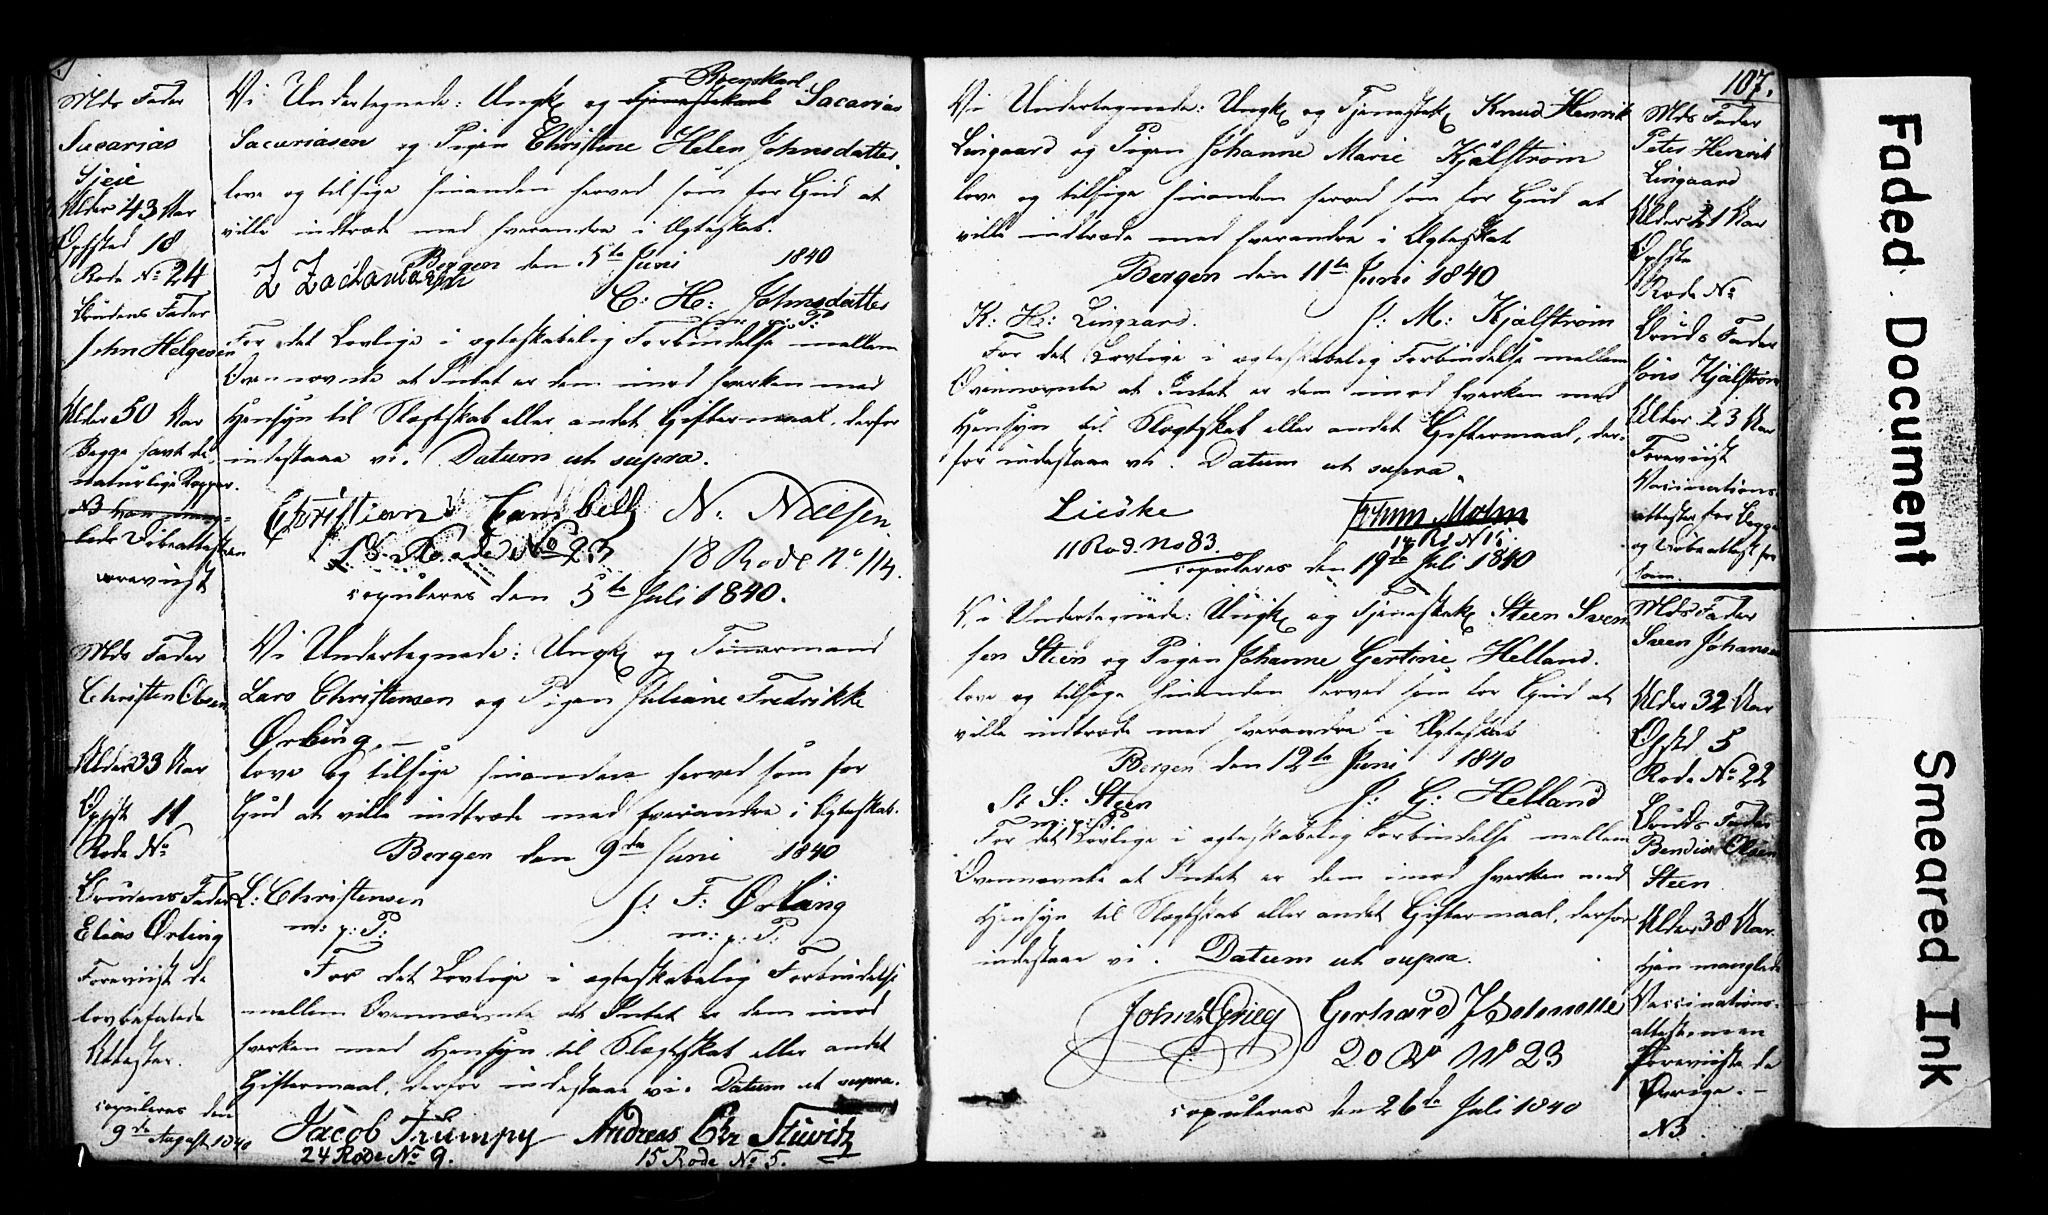 Mds Fader
Sacarias
Sjeie
Alder 43 Aar
Opfsted 18
Rode No 24
Brudens Fader
John Helgesen
Alder 50 Aar
Begge havt de
naturlige Kopper.
NB han mang-
lede Daabsattesten
foreviist
Vi Undertegnede: Ungk og Tjenestekarl Roerskarl Sacarias
Sacariasen og Pigen Christine Helen Johnsdatter,
love og tilsige hinanden herved som for Gud at
ville indtræde med hverandre i Ægteskab.
Bergen den 5te Juni 1840
Z Zachariasen
C: H: Johnsdatter
m: p: P:
For det Lovlige i ægteskabelig Forbindelse mellem
Ovennævnte at Intet er dem imod hverken med
Hensyn til Slægtskab eller andet Giftermaal, derfor
indestaae vi. Datum ut supra.
Christian Cambell N. Nielsen
18 Roode No 23 18 Rode No 114.
copuleres den 5te Juli 1840.
Mds Fader
Christen Olsen
Alder 33 Aar
Opfst 11
Rode No
Brudens Fader
Elias Ørbing
Foreviist de
lovbefalede
Attester.
copuleres den
9de August 1840
Vi Undertegnede: Ungk og Tømermand
Lars Christensen og Pigen Juliane Fredrikke
Ørbing,
love og tilsige hinanden herved som for
Gud at ville indtræde med hverandre i Ægteskab.
Bergen den 9de Juni 1840
L: Christensen J: F: Ørbing
m: p: P: m: p: P:
For det Lovlige i ægteskabelig Forbindelse
mellem Ovennævnte at Intet er dem imod
hverken med Hensyn til Slægtskab eller andet
Giftermaal, derfor indestaae vi. Datum ut supra.
Jacob Trumpy Andreas Chr Stüwitz
24 Rode No 9. 15 Rode No 5.
107.
Vi Undertegnede: Ungk og Tjenestek Knud Henrik
Lingaard og Pigen Johanne Marie Kjälstrøm
love og tilsige hinanden herved som for Gud at
ville indtræde med hverandre i Ægteskab
Bergen den 11te Juni 1840
K: H: Lingaard. J: M: Kjälstrøm
For det Lovlige i ægteskabelig Forbindelse mellem
Ovennævnte at Intet er dem imod hverken med
Hensyn til Slægtskab eller andet Giftermaal, der-
for indestaae vi. Datum ut supra.
Lieske Molm
11 Rod. No 83. 14 Rd N 15.
copuleres den 19de Juli 1840
Mds Fader
Peter Henrik
Lingaard
Alder 21 Aar
Opfste
Rode No
Bruds Fader
Jöns Kjälstrøm
Alder 23 Aar
Foreviist
Vaccinations-
attester for Begge
og Daabsattest for
ham.
Vi Undertegnede: Ungk og Tjenestek Steen Sven
sen Steen og Pigen Johanne Gertine Helland.
love og tilsige hinanden herved som for Gud at
ville indtræde med hverandre i Ægteskab
Bergen den 12te Juni 1840
St S: Steen J: G: Helland
m: p: P:
For det Lovlige i ægteskabelig Forbindelse mellem
Ovennævnte at Intet er dem imod hverken med
Hensyn til Slægtskab eller andet Giftermaal, derfor
indestaae vi. Datum ut supra.
John Grieg Gerhard
20 Ro No 23
copuleres den 26de Juli 1840
Mds Fader
Sven Johansen
Alder 32 Aar
Opfstd 5
Rode No 22
Bruds Fader
Bendix Olsen
Steen
Alder 38 Aar.
Han manglede
Vaccinations-
attest, men
Foreviiste de
Øvrige.
NB
Faded Document
Smeared Ink